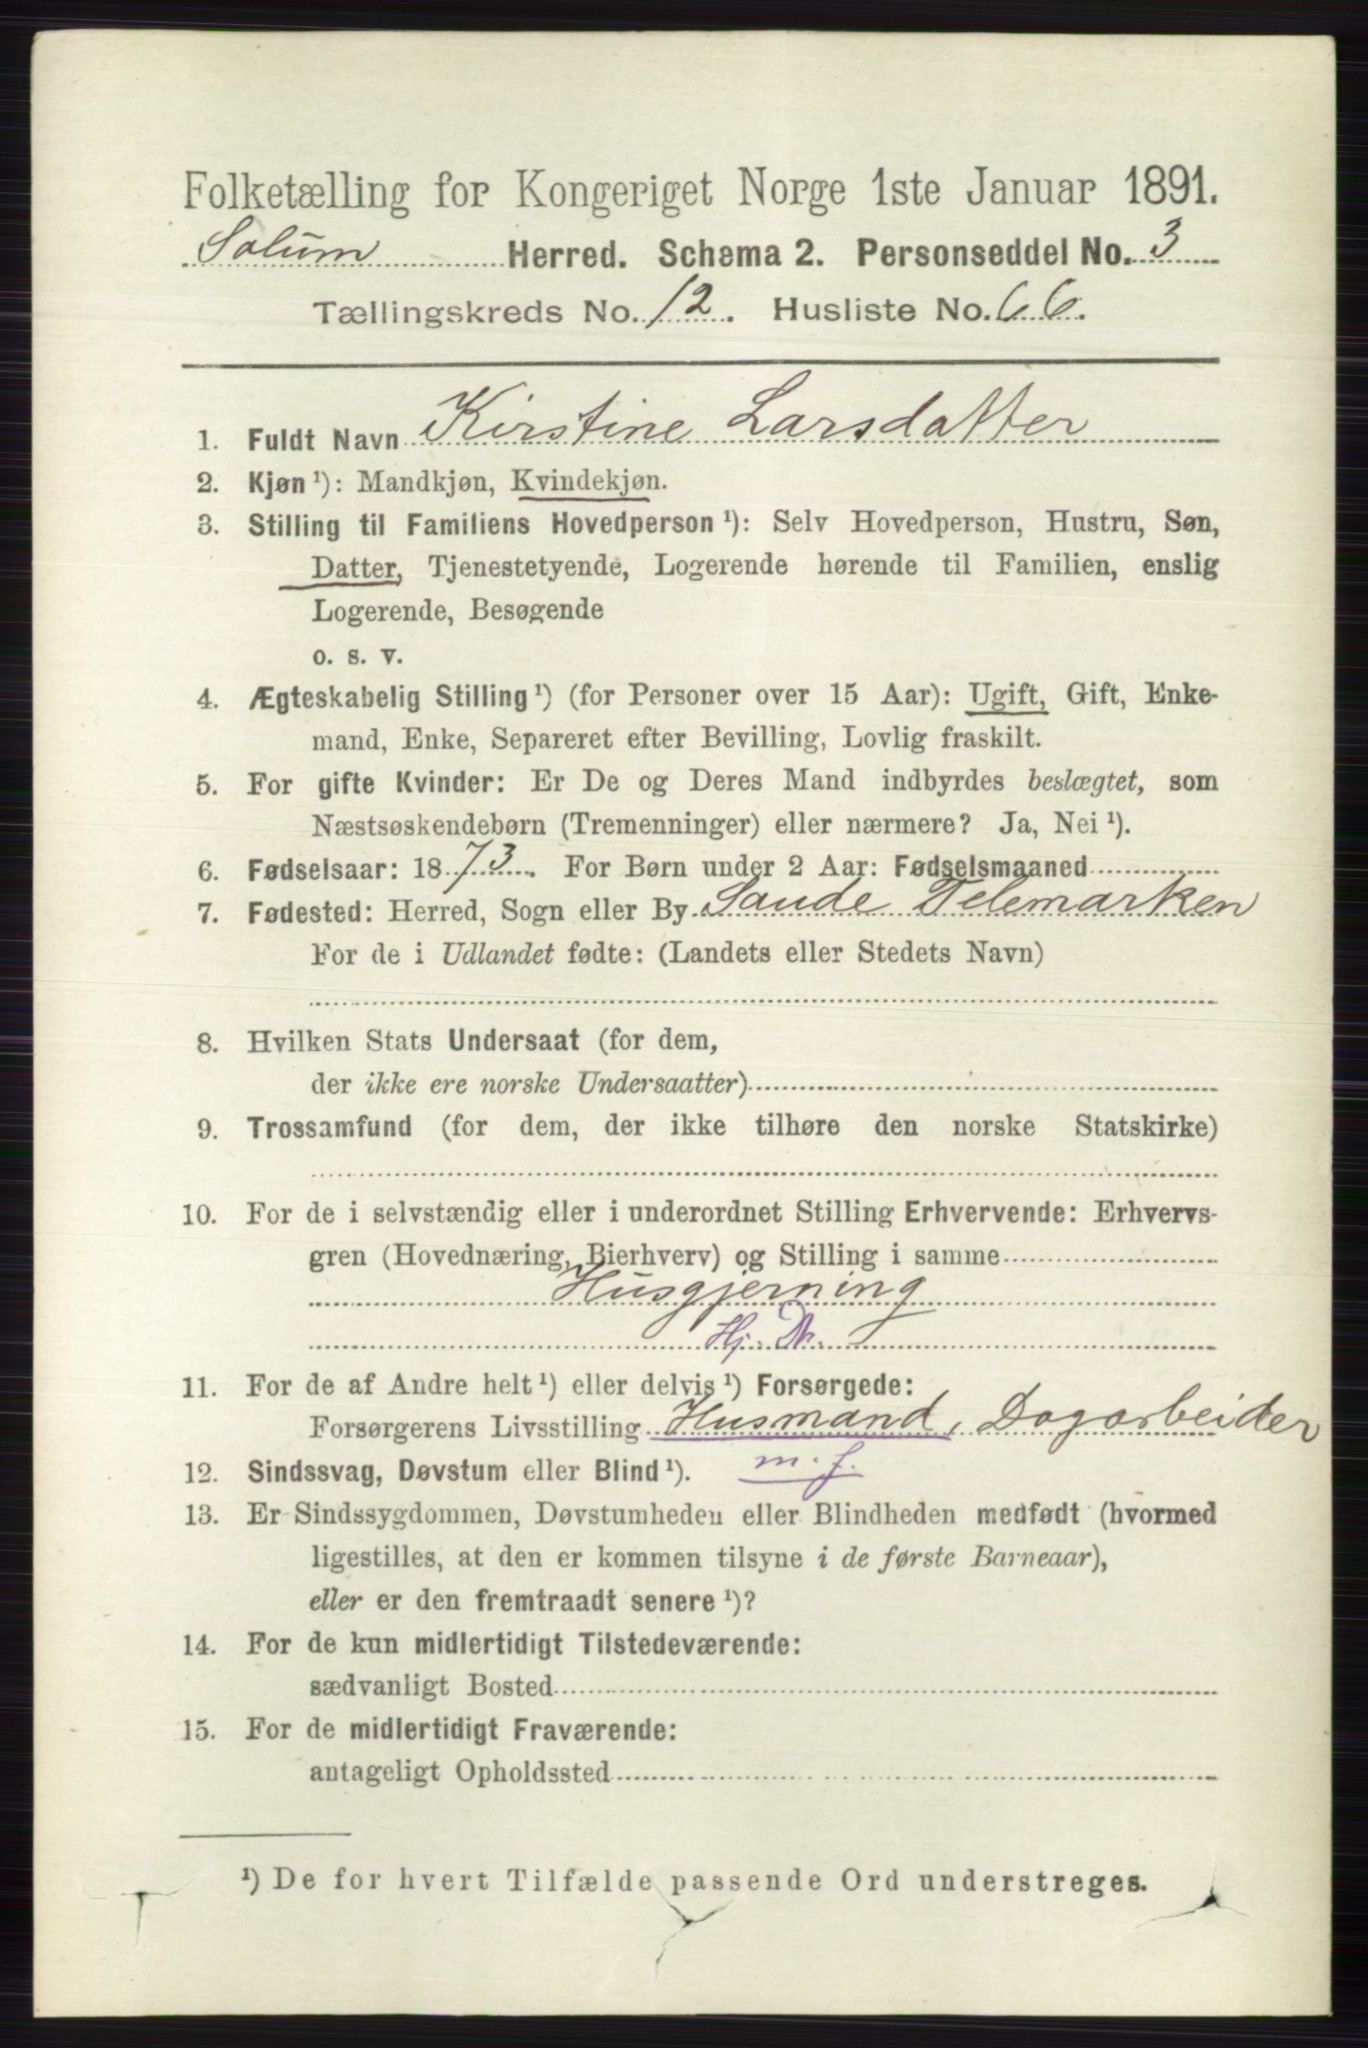 Folketælling for Kongeriget Norge 1ste Januar 1891.
Solum Herred. Schema 2. Personseddel No. 3
Tællingskreds No. 12. Husliste No. 66.
1. Fuldt Navn Kirstine Larsdatter
2. Kjøn ¹): Mandkjøn, Kvindekjøn.
3. Stilling til Familiens Hovedperson ¹): Selv Hovedperson, Hustru, Søn,
Datter, Tjenestetyende, Logerende hørende til Familien, enslig
Logerende, Besøgende
o. s. v.
4. Ægteskabelig Stilling ¹) (for Personer over 15 Aar): Ugift, Gift, Enke-
mand, Enke, Separeret efter Bevilling, Lovlig fraskilt.
5. For gifte Kvinder: Er De og Deres Mand indbyrdes beslægtet, som
Næstsøskendebørn (Tremenninger) eller nærmere? Ja, Nei ¹).
6. Fødselsaar: 1873. For Børn under 2 Aar: Fødselsmaaned
7. Fødested: Herred, Sogn eller By Saude Telemarken
For de i Udlandet fødte: (Landets eller Stedets Navn)
8. Hvilken Stats Undersaat (for dem,
der ikke ere norske Undersaatter)
9. Trossamfund (for dem, der ikke tilhøre den norske Statskirke)
10. For de i selvstændig eller i underordnet Stilling Erhvervende: Erhvervs-
gren (Hovednæring, Bierhverv) og Stilling i samme
Husgjerning
Hj. Dtr.
11. For de af Andre helt ¹) eller delvis ¹) Forsørgede:
Forsørgerens Livsstilling Husmand, Dagarbeider
m. j.
12. Sindssvag, Døvstum eller Blind ¹).
13. Er Sindssygdommen, Døvstumheden eller Blindheden medfødt (hvormed
ligestilles, at den er kommen tilsyne i de første Barneaar),
eller er den fremtraadt senere ¹)?
14. For de kun midlertidigt Tilstedeværende:
sædvanligt Bosted
15. For de midlertidigt Fraværende:
antageligt Opholdssted
¹) De for hvert Tilfælde passende Ord understreges.